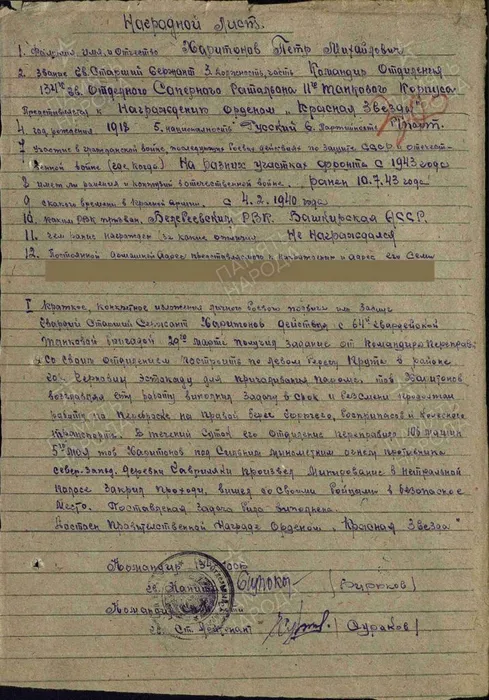 Наградной Лист.
1. Фамилия, имя и Отчество Харитонов Петр Михайлович
2. Звание Гв. Старший Сержант 3. Должность, часть Командир Отделения
134 гв. Отдельного Саперного Батальона 11го Танкового Корпуса
Представляется к Награждению Орденом „Красная Звезда"
4. год рождения 1918 5. национальность Русский 6. Партийность
7. Участие в Гражданской войне, последующих боевых действиях по защите СССР и отечест-
венной войне (где, когда) На разных участках фронта с 1943 года
8. имеет ли ранения и контузии в отечественной войне. ранен 10.7.43 года
9. с какого времени в Красной Армии. с 4.2.1940 года
10. каким РВК призван, РВК. Башкирская АССР.
11. чем ранее награжден за какие отличия Не Награждался
12. Постоянный домашний адрес представляемого к награждению и адрес его семьи
I Краткое, конкретное изложение личного боевого подвига или заслуг
Гвардии Старший Сержант Харитонов действуя с 64й Гвардейской
Танковой Бригадой 29го марта получил задание от Командира
со своим отделением построить по левом берегу Прута в районе
эстакаду для причаливания паромов. тов. Харитонов
возглавляя эту работу выполнил задачу в срок и
работу по Переброске на правый берег боеприпасов и колесного
транспорта. В течении суток его отделение переправил 106 машин
5го мая тов. Харитонов под сильным минометным огнем противника
северо-запад. деревни произвел минирование в нейтральной
полосе закрыл проходы, вышел со своими бойцами в безопасное
место. Поставленная задача была выполнена.
Достоин Правительственной Награде Орденом „Красная Звезда"
Командир 134
гв. Капитан
гв. Ст. Лейтенант